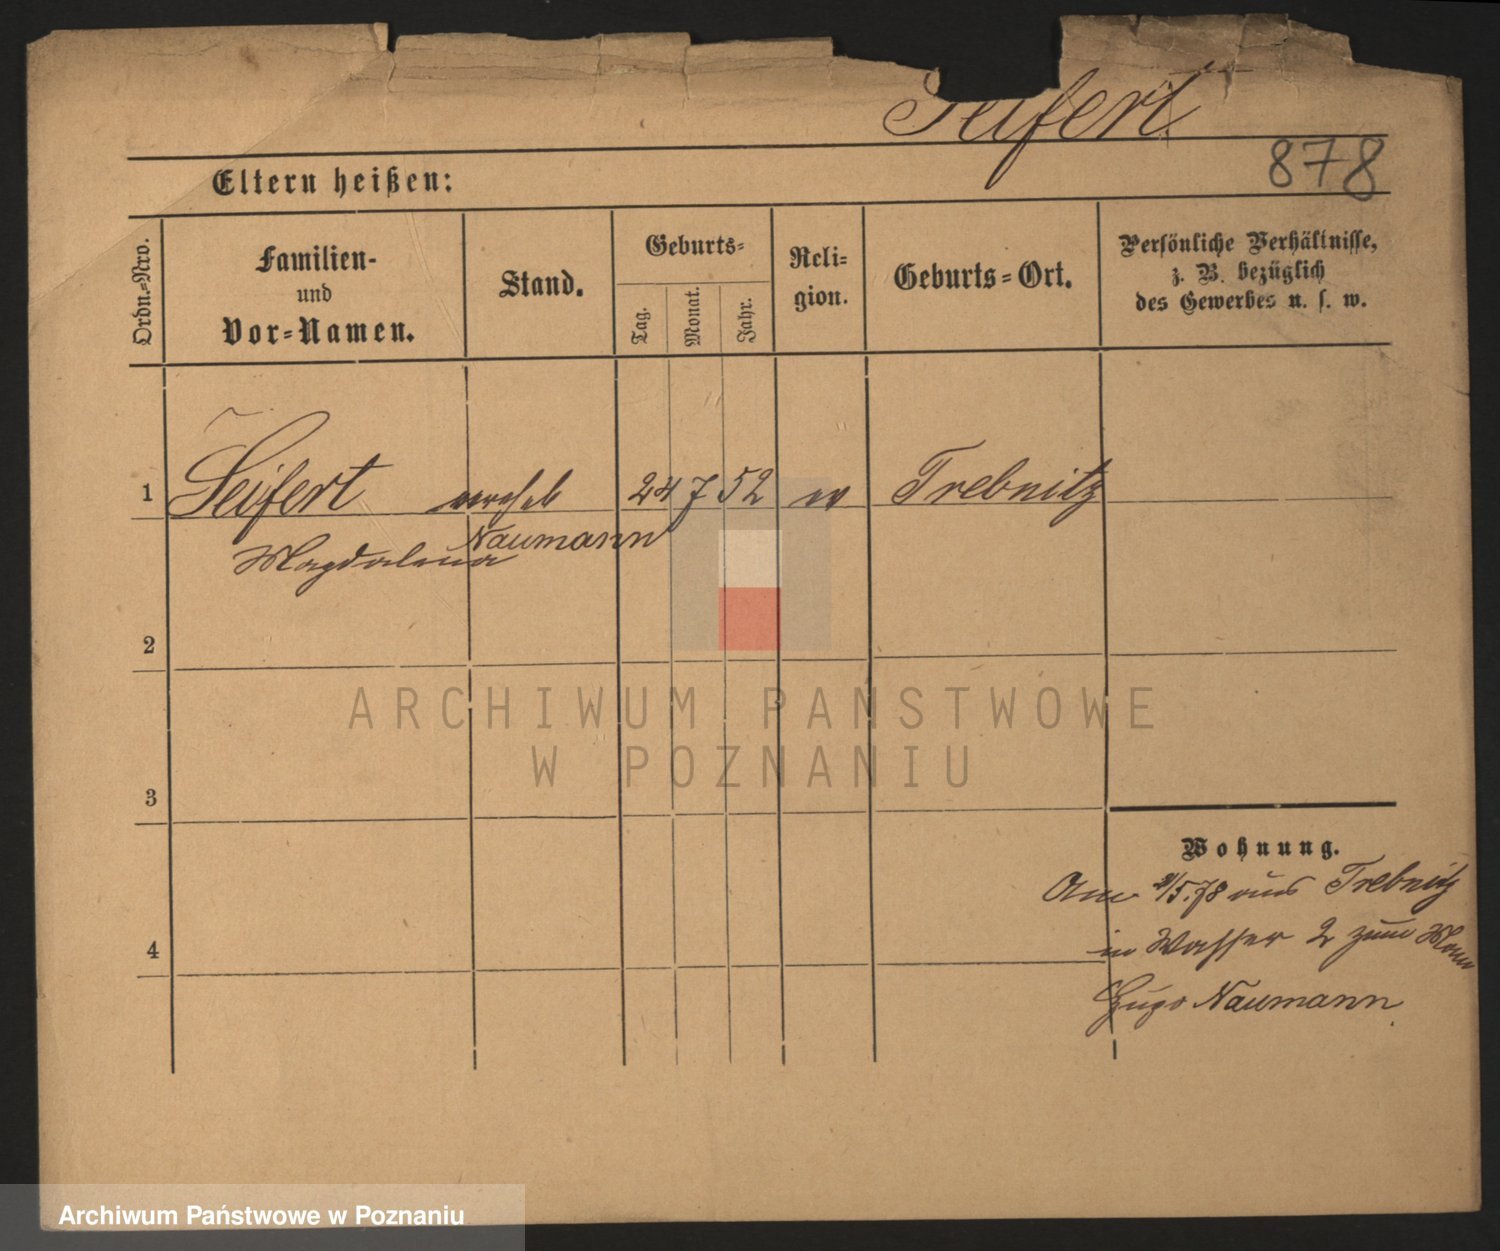 Seifert
878
Eltern heißen:
Ordn.-Nro.
Familien-
und
Vor-Namen.
Stand.
Geburts-
Tag.
Monat.
Jahr.
Reli-
gion.
Geburts-Ort.
Persönliche Verhältnisse,
z. B. bezüglich
des Gewerbes u. s. w.
1 Seifert verehel 24 7 52 ev Trebnitz
Magdalena Naumann
2
ARCHIWUM PAŃSTWOWE
W POZNANIU
3
Wohnung.
Am /5.78 aus Trebnitz
4
in Wasser 2 zum Mann
Hugo Naumann
Archiwum Państwowe w Poznaniu